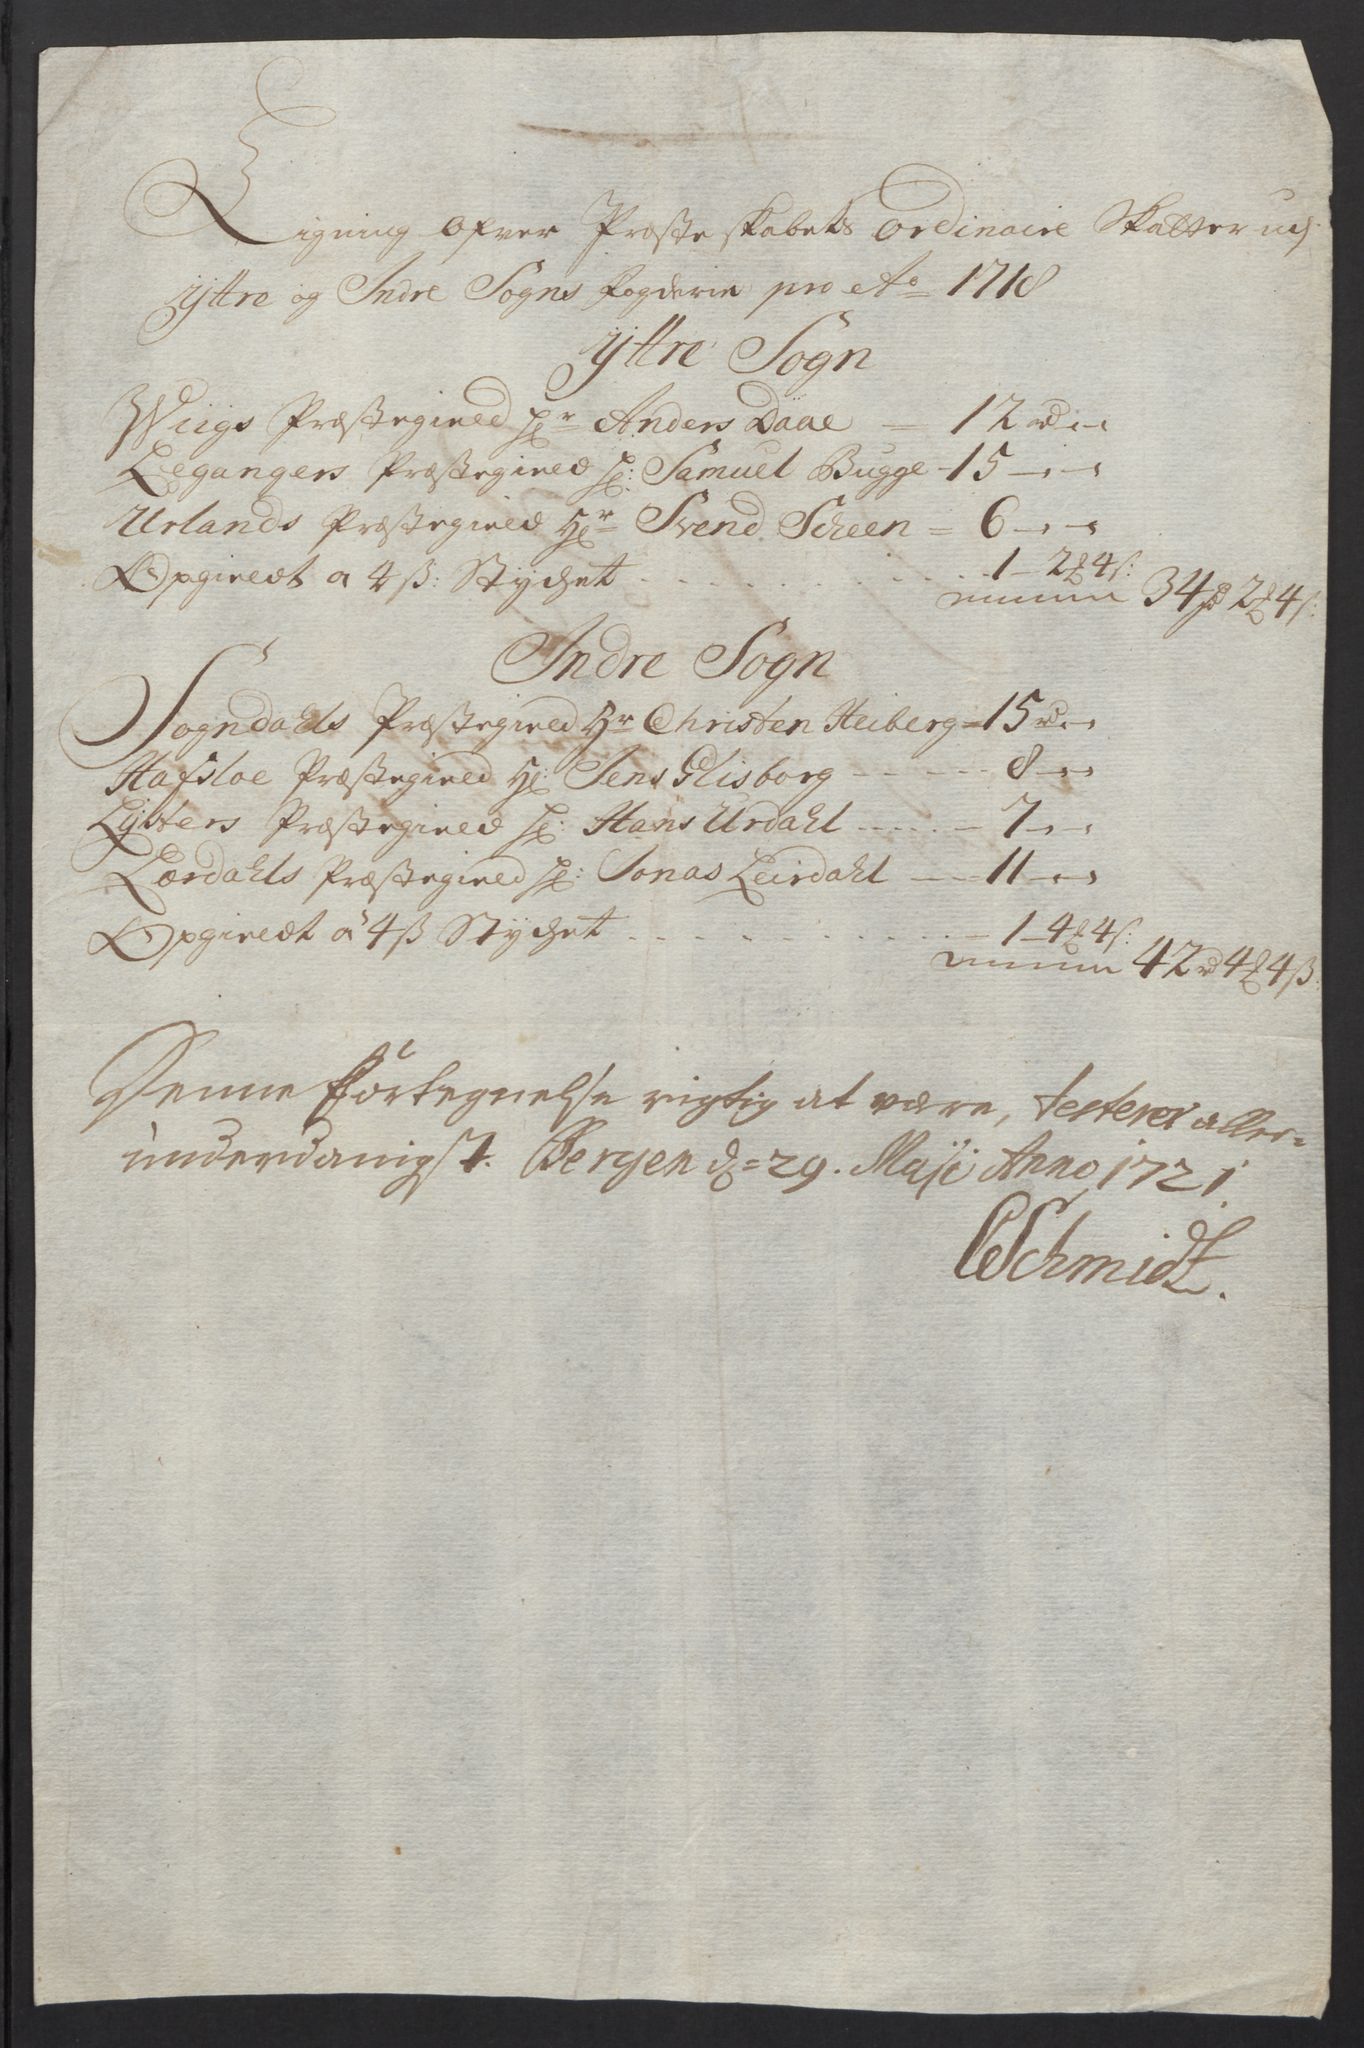 Ligning Ofver Præsteskabets Ordinaire Skatter udj
Yttre og Indre Sogns fogderie pro Ao 1718
Yttre Sogn
Wiigs Præstegield Hr Anders Daae = 12 rd - -
Leganger Præstegield H: Samuel Bugge - 15 - -
Urlands Præstegield Hr Svend Scheen = 6 - -
Opgieldt a 4 ß: Stycket . . . . . . 1 - 2 ℳ 4 ß:
34 rd 2 ℳ 4 ß:
Indre Sogn
Sogndahls Præstegield Hr Christen Heiberg = 15 rd - -
Hafsloe Præstegield H: Jens Glisborg - - - - - 8 - -
Lysters Præstegield H: Hans Urdahl - - - - - 7 - -
Lærdahls Præstegield H: Jonas Leirdahl - - 11 - -
Opgieldt a 4 ß Stycket . . . . . . 1 - 4 ℳ 4 ß:
42 rd 4 ℳ 4 ß:
Denne Fortegnelse rigtig at være, testerer aller=
underdanigst. Bergen d = 29. Maji Anno 1721.
CSchmidt.